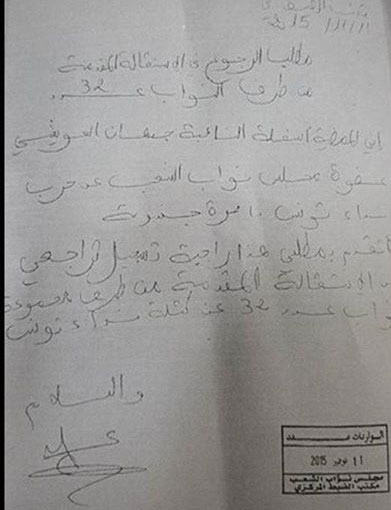 2015/11/11
مطلبا الرجوع في الاستقالة المقدمة
من طرف النواب عدد 32
إني الممضاة أسفله النائبة جيهان العويشي
عضوة مجلس نواب الشعب عن حزب
نداء تونس دائرة جندوبة
أتقدم بمطلبي هذا راجية تسجيل تراجعي
عن الاستقالة المقدمة من طرف مجموعة
نواب عدد 32 عن كتلة نداء تونس
والسلام
الواردات عدد
11 نوفمبر 2015
مجلس نواب الشعب
مكتب الضبط المركزي